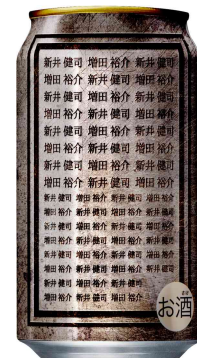 新井 健司 増田 裕介 新井 健司
増田 裕介 新井 健司 増田 裕介
新井 健司 増田 裕介 新井 健司
増田 裕介 新井 健司 増田 裕介
新井 健司 増田 裕介 新井 健司
増田 裕介 新井 健司 増田 裕介
新井 健司 増田 裕介 新井 健司
増田 裕介 新井 健司 増田 裕介
新井 健司 増田 裕介 新井 健司
増田 裕介 新井 健司 増田 裕介
新井 健司 増田 裕介 新井 健司
増田 裕介 新井 健司 増田 裕介
新井 健司 増田 裕介 新井 健司
増田 裕介 新井 健司 増田 裕介
新井 健司 増田 裕介 新井 健司
増田 裕介 新井 健司 増田 裕介
お酒